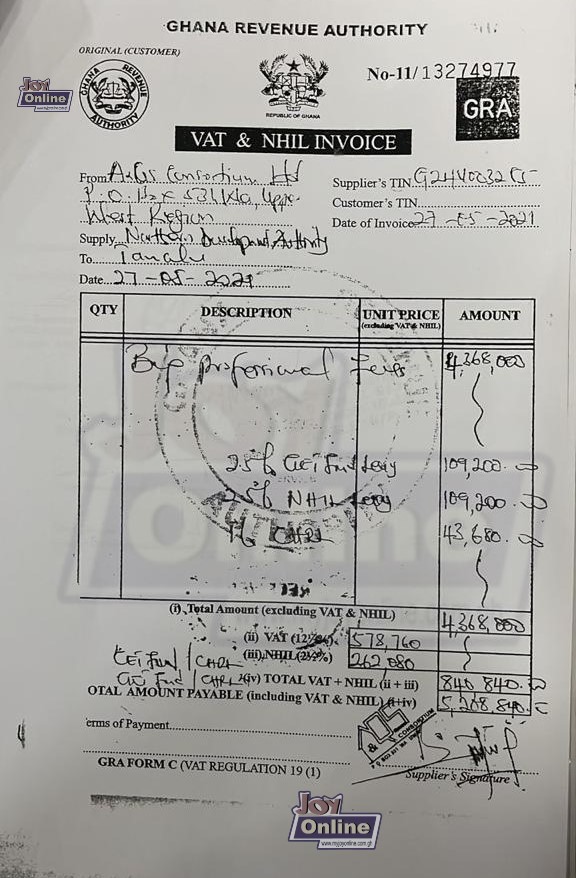 GHANA REVENUE AUTHORITY
ORIGINAL (CUSTOMER)
No-11/13274977
JOY
Online
GHANA REVENUE
AUTHORITY
REPUBLIC OF GHANA
GRA
VAT & NHIL INVOICE
From A&GS Consortium Ltd
P.O. Box 531 Wa, Upper
West Region
Supplier's TIN
Customer's TIN
Date of Invoice 27-05-2021
Supply Northern Development Authority
To Tamale
Date 27-05-2021
QTY DESCRIPTION UNIT PRICE AMOUNT
(excluding VAT & NHIL)
Being professional Fees 4,368,000
2.5% GETFund Levy 109,200.00
2.5% NHIL Levy 109,200.00
1% CHRL 43,680.00
(i) Total Amount (excluding VAT & NHIL) 4,368,000
(ii) VAT (12½%) 578,760
(iii) NHIL (2½%) 262,080
GETFund / CHRL
GETFund / CHRL (iv) TOTAL VAT + NHIL (ii + iii) 840 840.00
OTAL AMOUNT PAYABLE (including VAT & NHIL) (i+iv) 5,208,840.00
erms of Payment
CONSORTIUM
Supplier's Signature
GRA FORM C (VAT REGULATION 19 (1)
JOY
Online
www.myjoyonline.com.gh